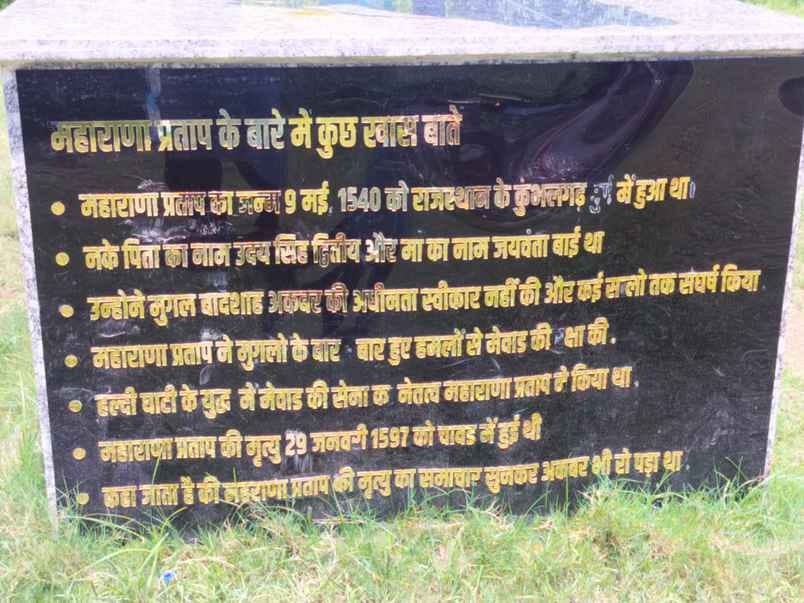 महाराणा प्रताप के बारे में कुछ खास बाते
महाराणा प्रताप का जन्म 9 मई, 1540 को राजस्थान के कुंभलगढ़ में हुआ था।
नके पिता का नाम उदय सिंह द्वितीय और मा का नाम जयवंता बाई था
उन्होने मुगल बादशाह अकबर की अधीनता स्वीकार नहीं की और कई सालो तक संघर्ष किया
महाराणा प्रताप ने मुगलो के बार बार हुए हमलों से मेवाड की क्षा की.
हल्दी घाटी के युद्ध में मेवाड की सेना क नेतत्व महाराणा प्रताप ने किया था
महाराणा प्रताप की मृत्यु 29 जनवरी 1597 को चावड में हुई थी
कहा जाता है की महाराणा प्रताप की मृत्यु का समाचार सुनकर अकबर भी रो पड़ा था